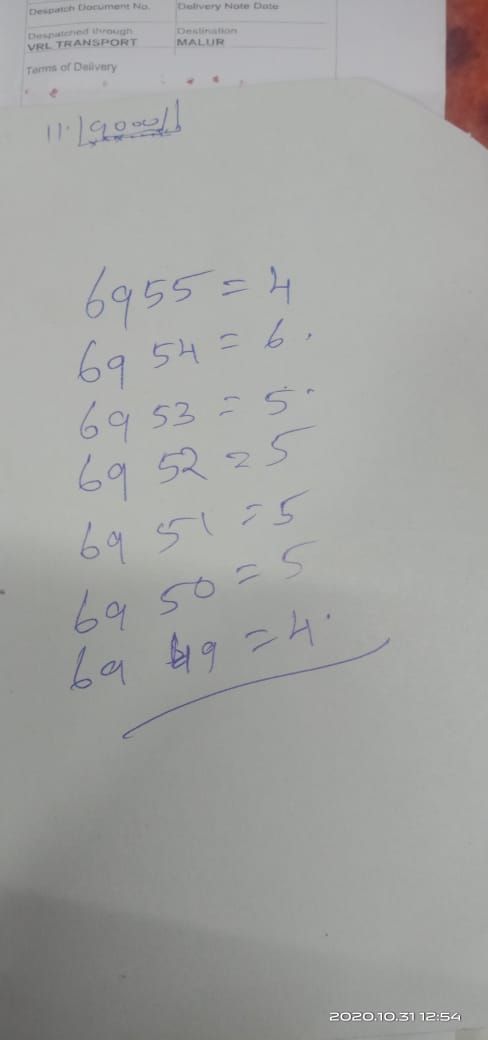 Despatch Document No. Delivery Note Date
Despatched through Destination
VRL TRANSPORT MALUR
Terms of Delivery
6955 = 4
69 54 = 6.
69 53 = 5.
69 52 = 5
69 51 = 5
69 50 = 5
69 49 = 4.
2020.10.31 12:54